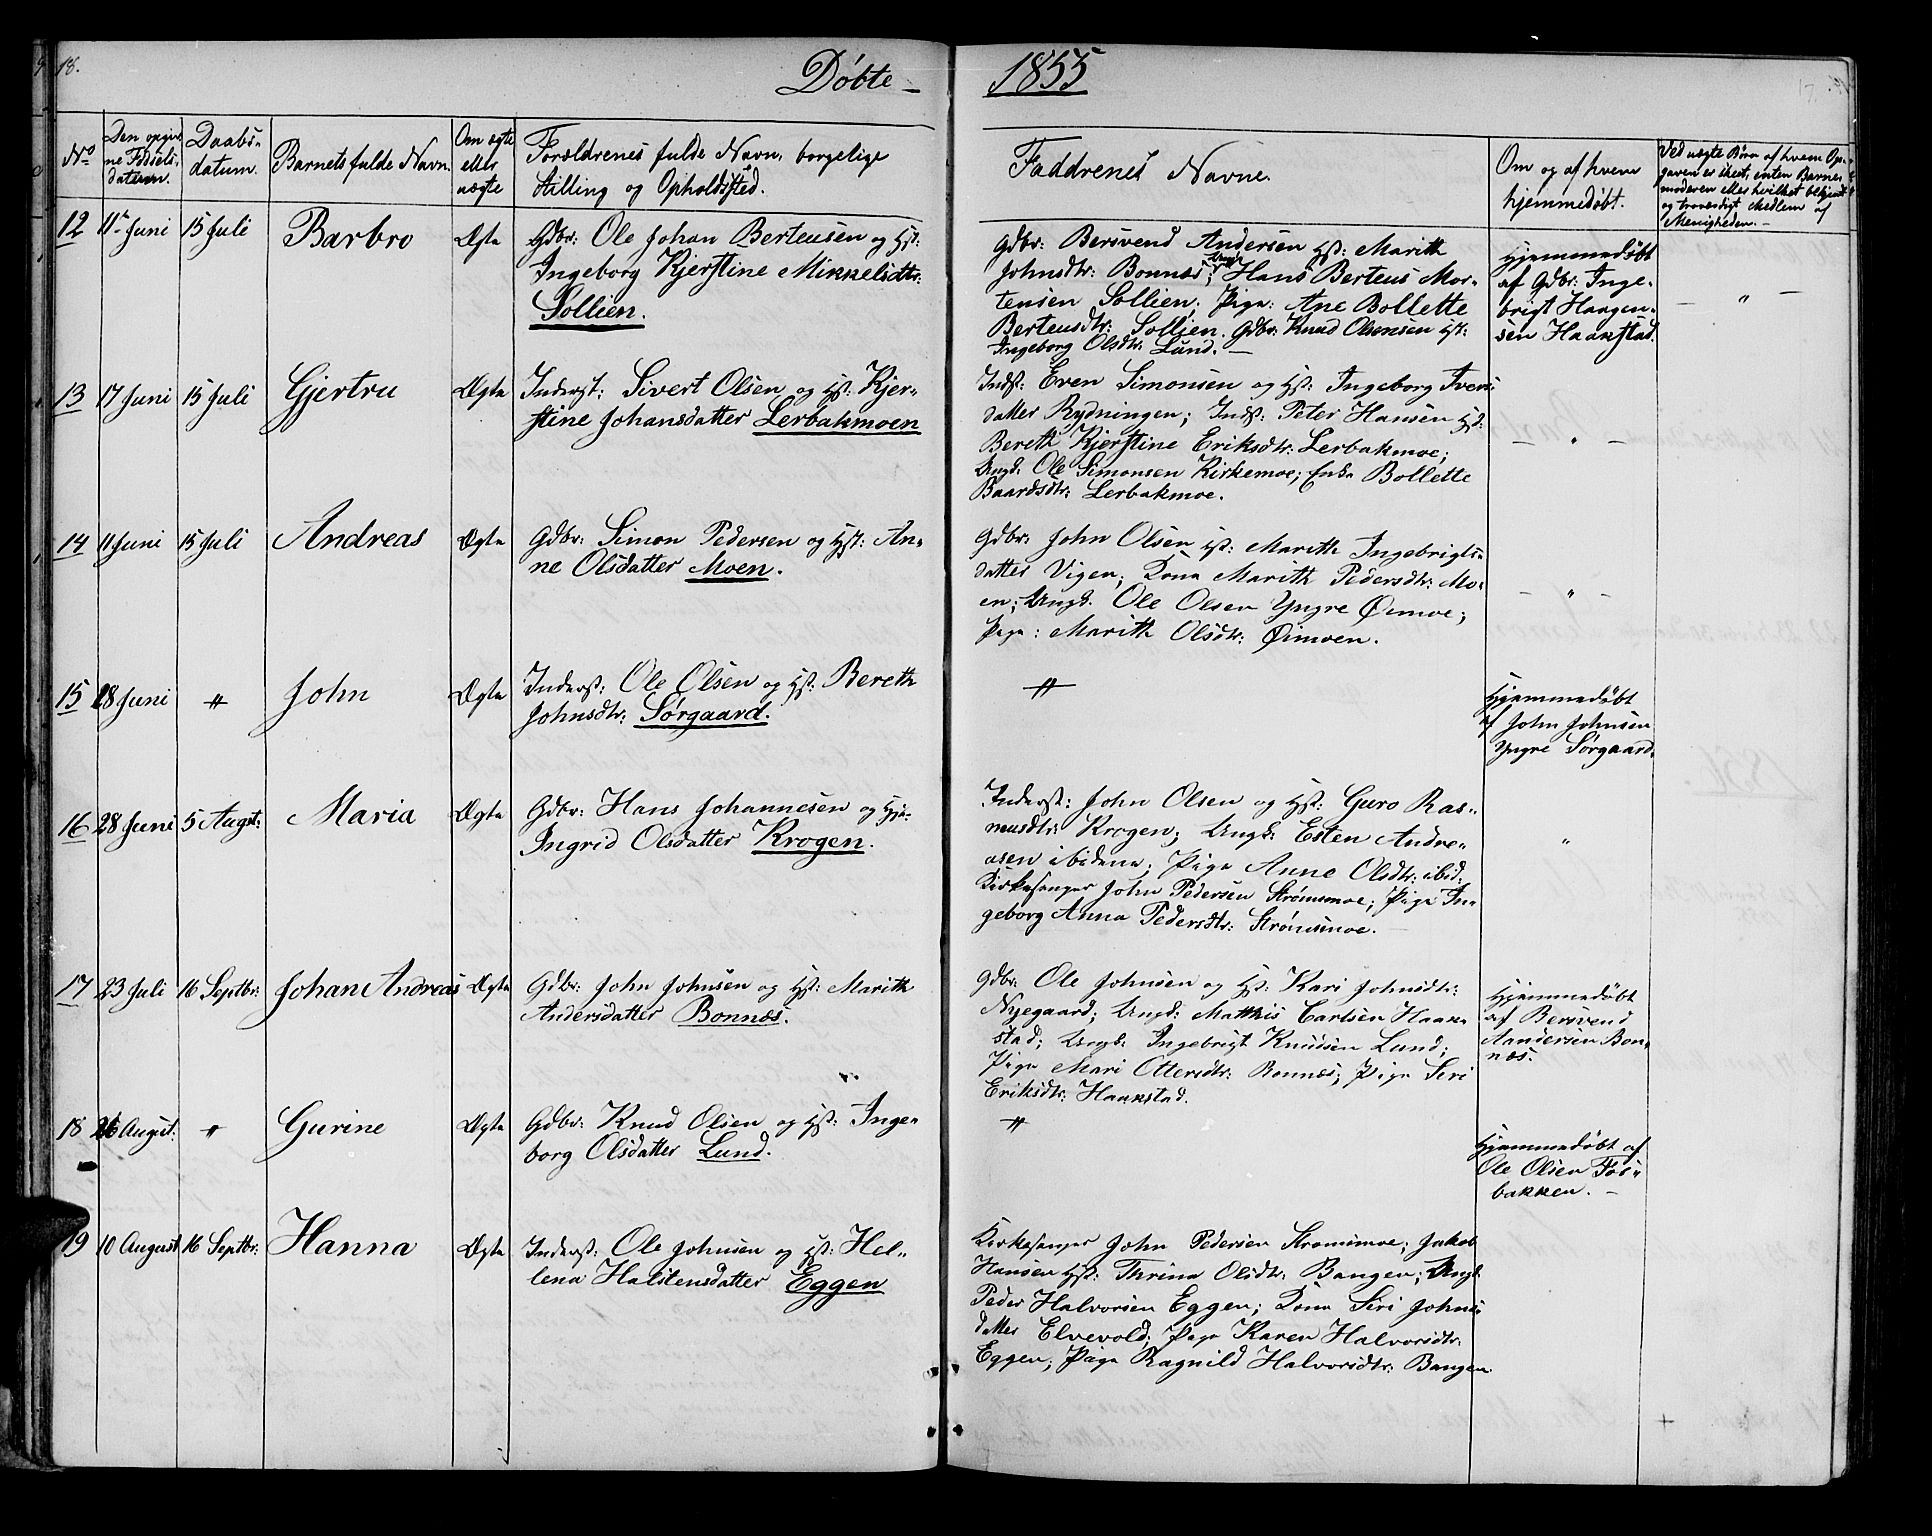 18.
Døbte – 1855
No
Den opgiv
ne Fødsels-
datum.
Daabs-
datum.
Barnets fulde Navn.
Om ægte
eller
uægte
Forældrenes fulde Navn, borgelige
Stilling og Opholdssted.
Faddrenes Navne.
Om og af hvem
hjemmedøbt.
Ved uægte Børn af hvem Op-
gaven er skeet, enten Barne-
moderen eller hvilket bekjendt
og troværdigt Medlem af
Menigheden. –
12 11te Juni 15 Juli Barbro Ægte
Gdbr: Ole Johan Berteusen og Hst:
Ingeborg Kjerstine Mikkelsdtr:
Sollien.
Gdbr: Bersvend Andersen Hst: Marith
Johnsdtr: Bonnæs; Ungk: Hans Berteus Mor-
tensen Sollien; Pige: Ane Bollette
Berteusdtr: Sollien. Gdbr: Knud Olsensen Hst:
Ingeborg Olsdtr: Lund. –
Hjemmedøbt
af Gdbr: Inge-
brigt Haagen-
sen Haakstad.
– " –
13 17 Juni 15 Juli Gjertru Ægte
Inderst: Sivert Olsen og Hst: Kjer-
stine Johansdatter Lerbakmoen
Indst: Even Simonsen og Hst: Ingeborg Ivers-
datter Rydningen; Indst: Peter Hansen Hst:
Bereth Kjerstine Eriksdtr: Lerbakmoe;
Ungk: Ole Simonsen Kirkemoe; Enke Bollette
Baardsdtr: Lerbakmoe.
– " –
14 11 Juni 15 Juli Andreas Ægte
Gdbr: Simon Pedersen og Hst: An-
ne Olsdatter Moen.
Gdbr: John Olsen Hst: Marith Ingebrigts-
datter Vigen; Kone Marith Pedersdtr: Mo-
en; Ungk. Ole Olsen Yngre Øimoe;
Pige: Marith Olsdtr: Øimoen.
– " –
15 28 Juni " John Ægte
Inderst: Ole Olsen og Hst: Bereth
Johnsdtr: Sørgaard.
"
Hjemmedøbt
af John Johnsen
Yngre Sørgaard.
16 28 Juni 5 Augst: Maria Ægte
Gdbr: Hans Johannesen og Hst:
Ingrid Olsdatter Krogen.
Inderst: John Olsen og Hst: Guro Ras-
musdtr: Krogen; Ungk: Esten Andre-
asen ibidem; Pige Anne Olsdtr: ibid.
Kirkesanger John Pedersen Strømsmoe; Pige In-
geborg Anna Pedersdtr: Strømsmoe. –
"
17 23 Juli 16 Septbr: Johan Andreas Ægte
Gdbr: John Johnsen og Hst: Marith
Andersdatter Bonnæs.
Gdbr: Ole Johnsen og Hst: Kari Johnsdtr:
Nyegaard; Ungk: Matthis Carlsen Haak-
stad; Ungk: Ingebrigt Knudsen Lund;
Pige Mari Ottersdtr: Bonnæs; Pige Siri
Eriksdtr: Haakstad.
Hjemmedøbt
af Bersvend
Aandersen Bon-
næs.
18 26 August: " Gurine Ægte
Gdbr: Knud Olsen og Hst: Inge-
borg Olsdatter Lund.
"
Hjemmedøbt af
Ole Olsen Fos-
bakken. –
19 10 August 16 Septbr: Hanna Ægte
Inderst: Ole Johnsen og Hst: Hel-
lena Halstensdatter Eggen
Kirkesanger John Pedersen Strømsmoe; Jakob
Hansen Hst: Thrina Olsdtr: Bangen; Ungk:
Peder Halvorsen Eggen; Kone Siri Johns-
datter Elvevold; Pige Karen Halvorsdtr:
Eggen; Pige Ragnild Halvorsdtr: Bangen.